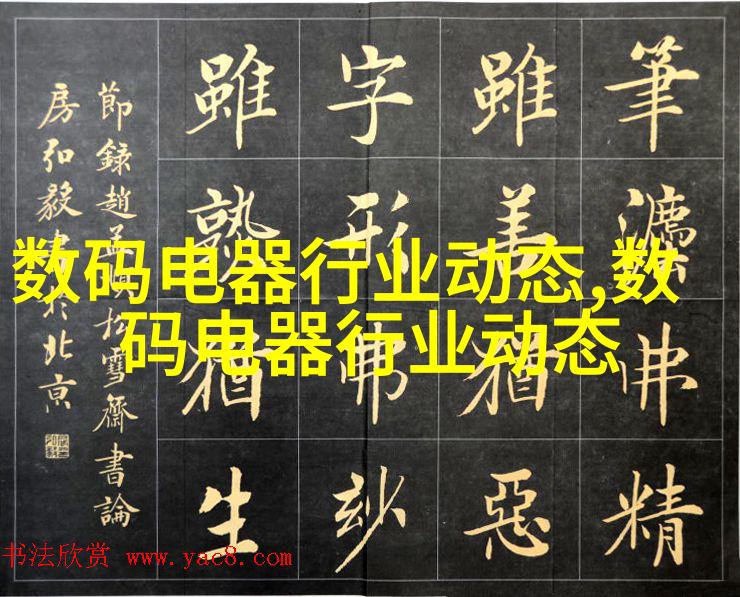 筆灋弗精
雖善猶惡
字形弗玅
雖熟猶生
節錄趙孟頫松雪齋書論
房弘毅書於北京
数码电器行业动态,数
码电器行业动态
书法欣赏 www.yac8.com